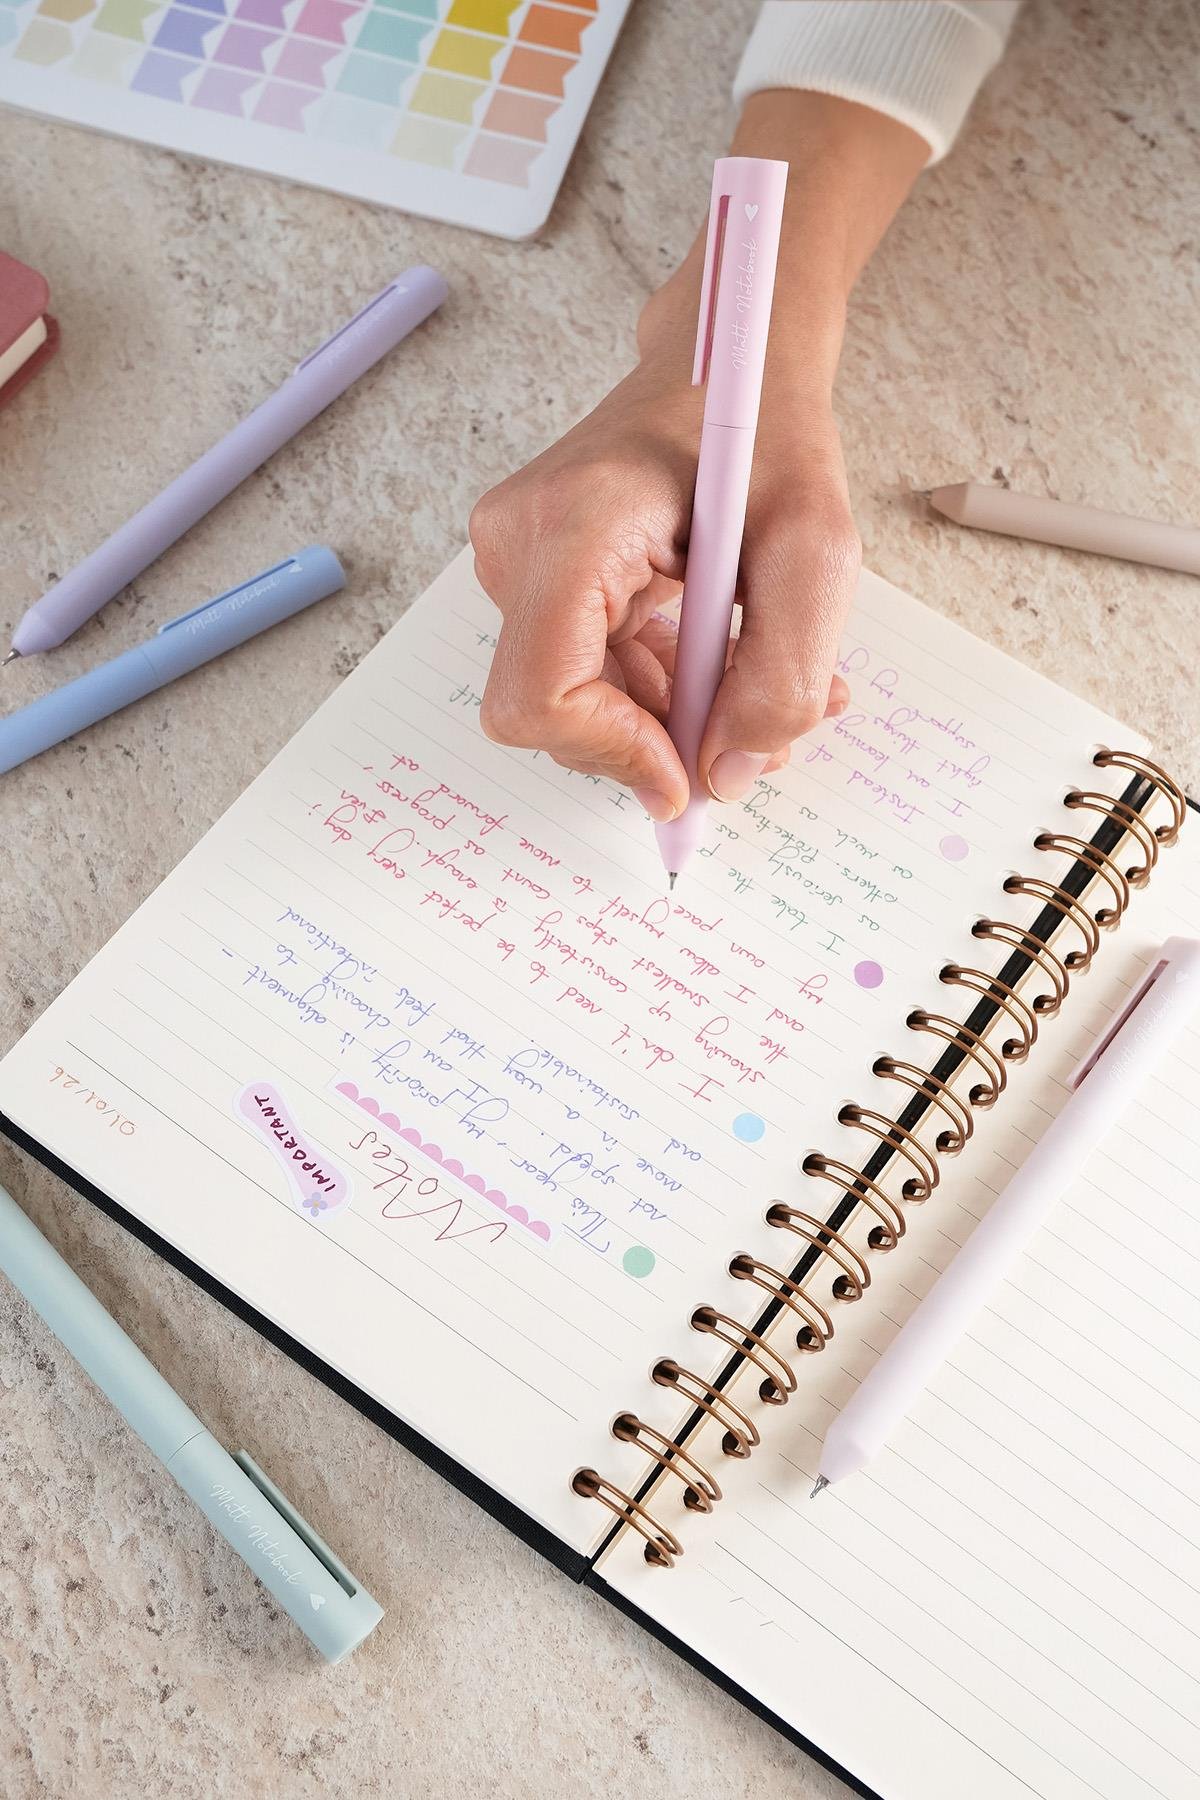 01/01/26
IMPORTANT
Notes
This year, my priority is alignment -
not speed. I am choosing to
move in a way that feels intentional
and sustainable.
I don't need to be perfect every day;
showing up consistently is enough. Even
the smallest steps count as progress,
and I allow myself to move forward at
my own pace.
I take the
as seriously as
others. Protecting
as much as
Instead of
I am learning
fight things
support my
Matt Notebook
Matt Notebook
Matt Notebook
Matt Notebook